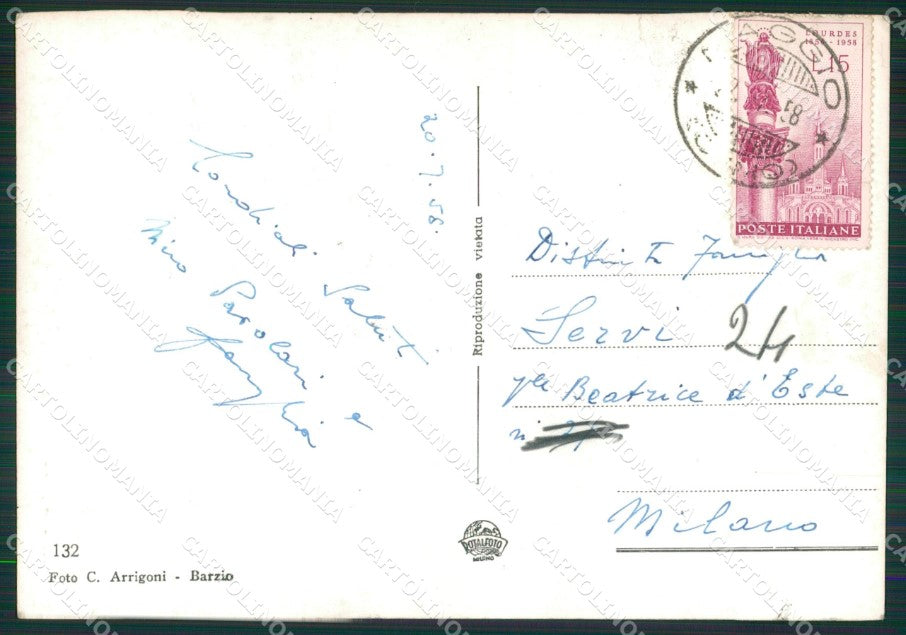 20.7.58.
Cordiali Saluti
Nino Parolari e
famiglia
Riproduzione vietata
LOURDES
1858 - 1958
L.15
POSTE ITALIANE
MAGGIO
COMO
Distinta Famiglia
Servi
24
Vle Beatrice d'Este
n°
Milano
ROTALFOTO
MILANO
132
Foto C. Arrigoni - Barzio
CARTOLINOMANIA